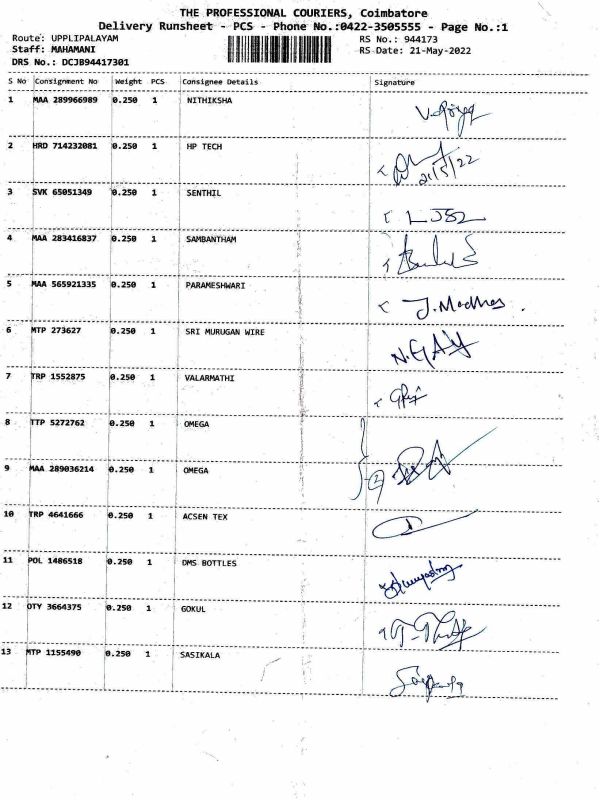 THE PROFESSIONAL COURIERS, Coimbatore
Delivery Runsheet - PCS - Phone No.:0422-3505555 - Page No.:1
Route: UPPLIPALAYAM RS No.: 944173
Staff: MAHAMANI RS Date: 21-May-2022
DRS No.: DCJB94417301
S No Consignment No Weight PCS Consignee Details Signature
1 MAA 289966989 0.250 1 NITHIKSHA
2 HRD 714232081 0.250 1 HP TECH
21/5/22
3 SVK 65051349 0.250 1 SENTHIL
4 MAA 283416837 0.250 1 SAMBANTHAM
5 MAA 565921335 0.250 1 PARAMESHWARI
J. Madhas
6 MTP 273627 0.250 1 SRI MURUGAN WIRE
7 TRP 1552875 0.250 1 VALARMATHI
8 TTP 5272762 0.250 1 OMEGA
9 MAA 289036214 0.250 1 OMEGA
2
10 TRP 4641666 0.250 1 ACSEN TEX
11 POL 1486518 0.250 1 DMS BOTTLES
12 OTY 3664375 0.250 1 GOKUL
13 MTP 1155490 0.250 1 SASIKALA